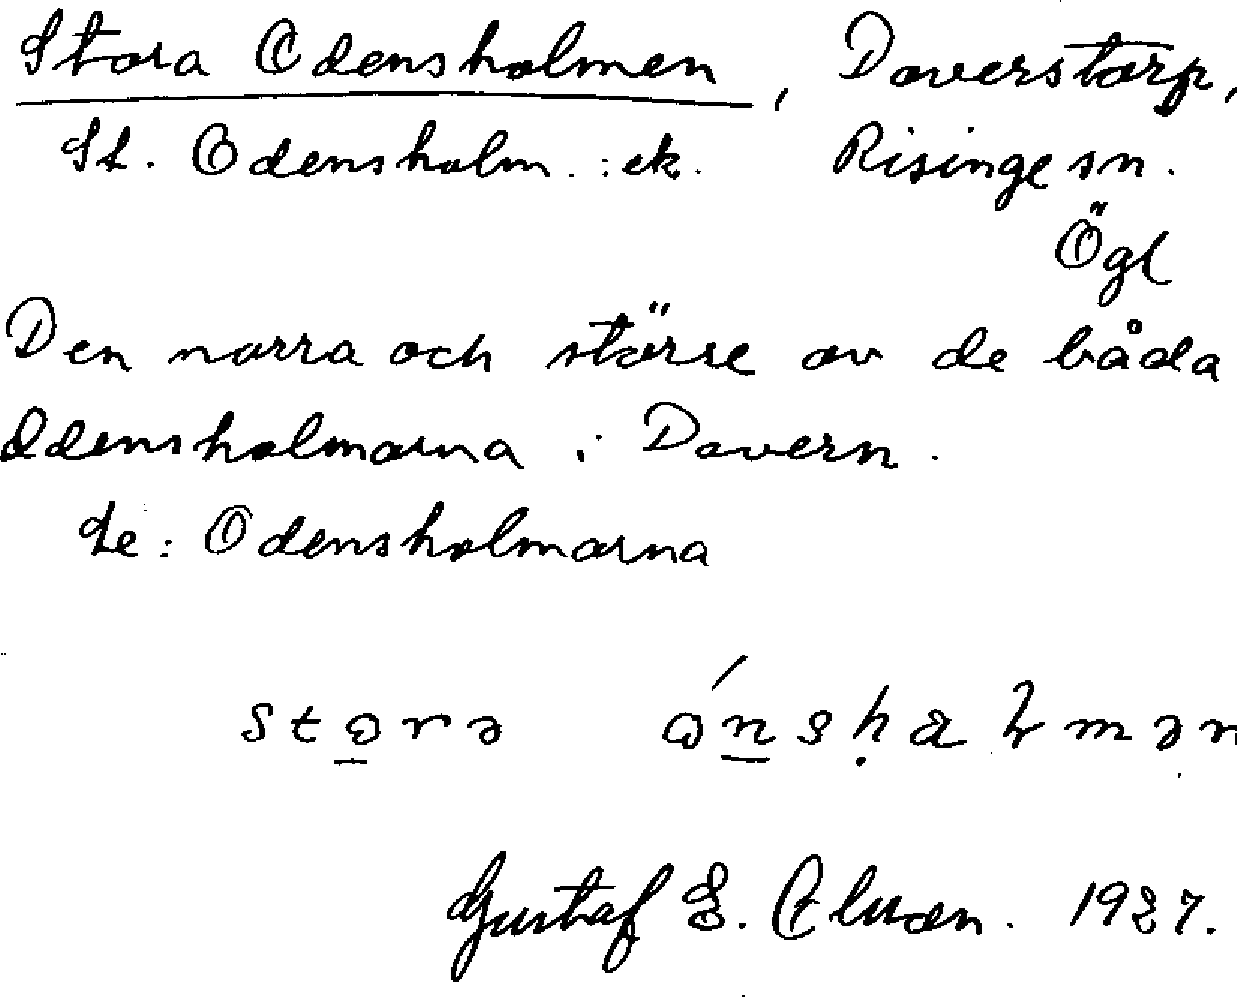 Stora Odensholmen, Doverstorp,
St. Odensholm. : ek. Risinge sn.
Ögl
Den norra och större av de båda
Odensholmarna i Dovern.
Se: Odensholmarna
Gustaf E. 1927.